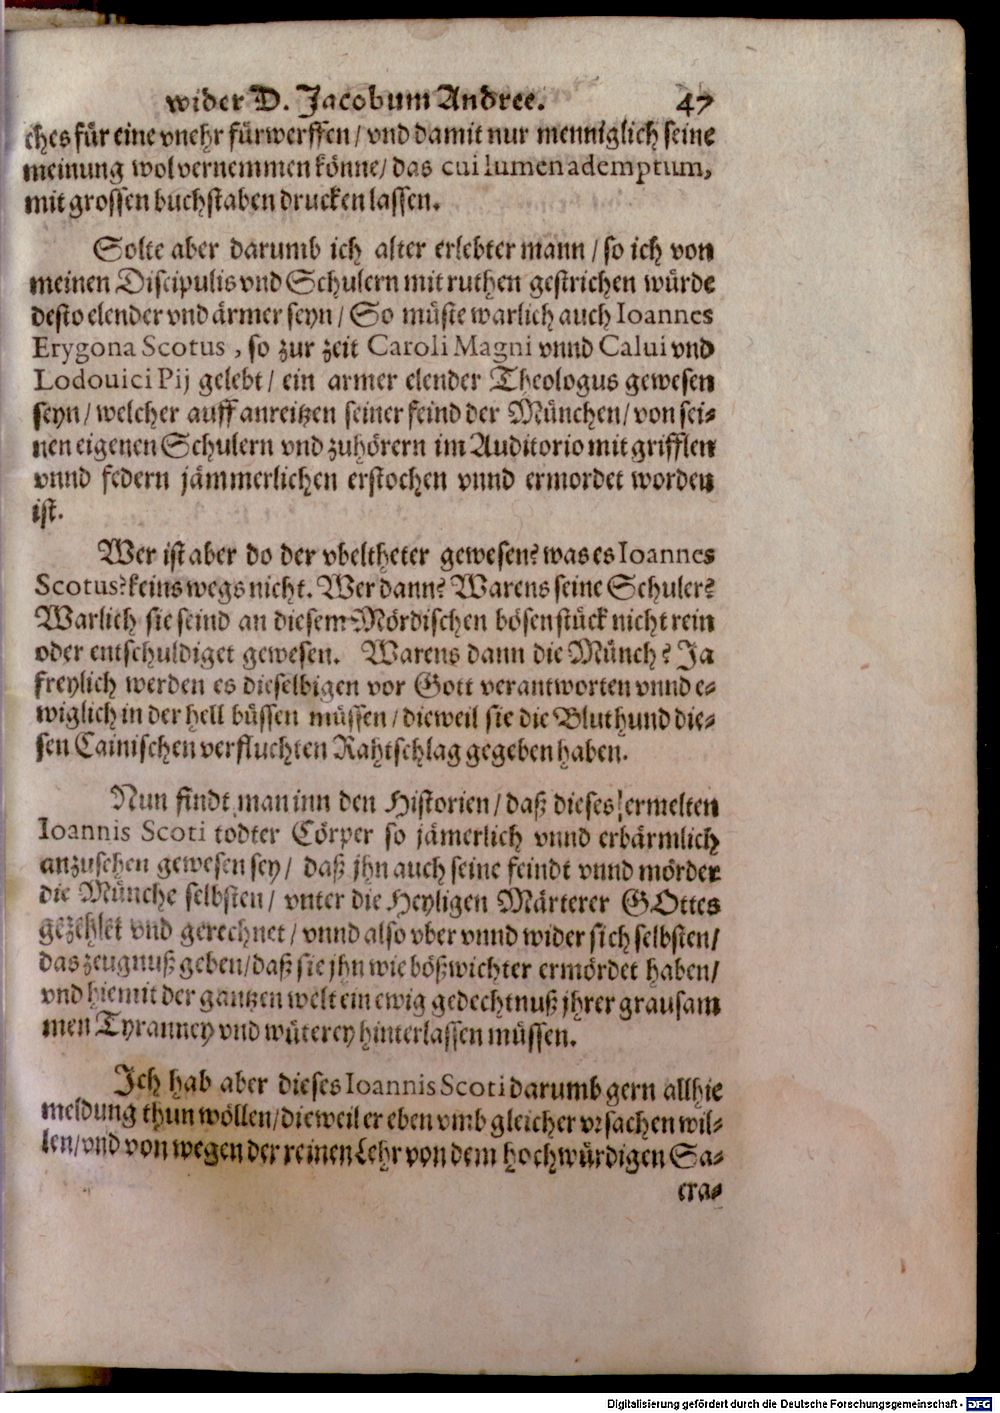 wider D. Jacobum Andree. 47
ches für eine vnehr fürwerffen/ vnd damit nur menniglich seine
meinung wol vernemmen könne/ das cui lumen ademptum,
mit grossen buchstaben drucken lassen.
Solte aber darumb ich alter erlebter mann / so ich von
meinen Discipulis vnd Schulern mit ruthen gestrichen würde
desto elender vnd ärmer seyn / So müste warlich auch Ioannes
Erygona Scotus, so zur zeit Caroli Magni vnnd Calui vnd
Lodouici Pij gelebt/ ein armer elender Theologus gewesen
seyn / welcher auff anreitzen seiner feind der München/ von sei-
nen eigenen Schulern vnd zuhörern im Auditorio mit grifflen
vnnd federn jämmerlichen erstochen vnnd ermordet worden
ist.
Wer ist aber do der vbeltheter gewesen? was es Ioannes
Scotus? keins wegs nicht. Wer dann? Warens seine Schuler?
Warlich sie seind an diesem Mördischen bösen stück nicht rein
oder entschuldiget gewesen. Warens dann die Münch? Ja
freylich werden es dieselbigen vor Gott verantworten vnnd e-
wiglich in der hell büssen müssen / dieweil sie die Bluthund die-
sen Cainischen verfluchten Rahtschlag gegeben haben.
Nun findt man inn den Historien / daß dieses ermelten
Ioannis Scoti todter Cörper so jämerlich vnnd erbärmlich
anzusehen gewesen sey / daß jhn auch seine feindt vnnd mörder
die Münche selbsten / vnter die Heyligen Märterer GOttes
gezehlet vnd gerechnet / vnnd also vber vnnd wider sich selbsten/
das zeugnuß geben/ daß sie jhn wie bößwichter ermördet haben/
vnd hiemit der gantzen welt ein ewig gedechtnuß jhrer grausam
men Tyranney vnd wüterey hinterlassen müssen.
Ich hab aber dieses Ioannis Scoti darumb gern allhie
meldung thun wöllen/ dieweil er eben vmb gleicher vrsachen wil-
len/ vnd von wegen der reinen Lehr von dem hochwürdigen Sa-
cra-
Digitalisierung gefördert durch die Deutsche Forschungsgemeinschaft - DFG